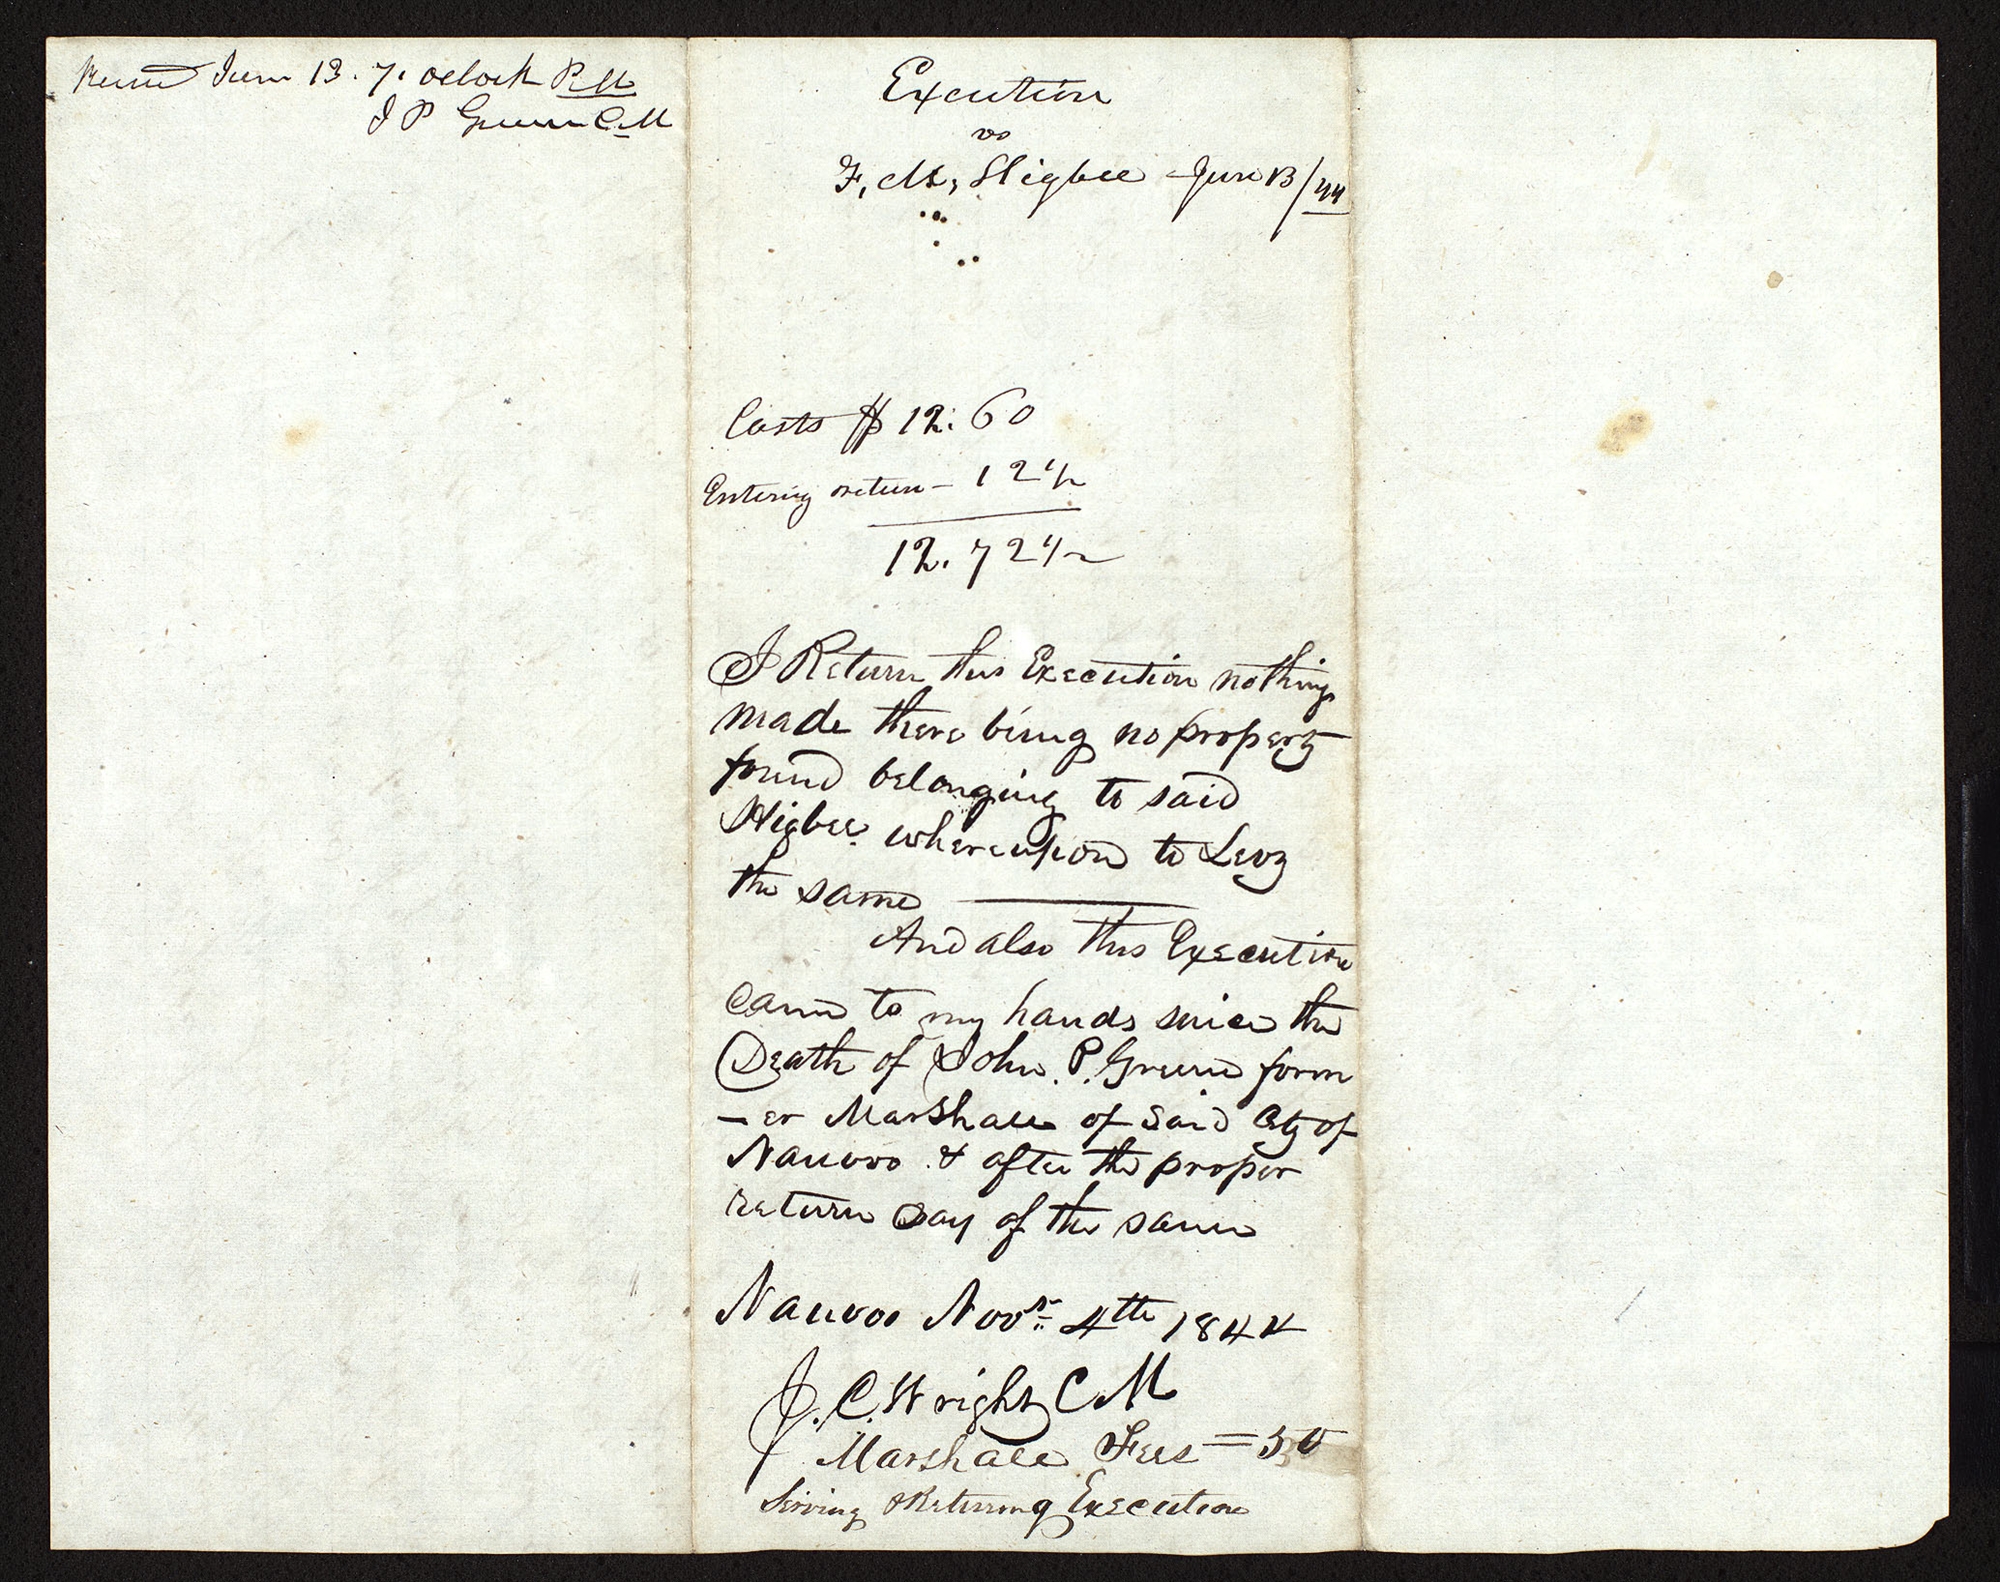 Recived June 13. 7. oclock P.M
J P Greene C.M
Execution
vs
F, M, Higbee June 13/44
Costs $ 12: 60
Entering return - 12 1/2
12. 72 1/2
I Return this Execution nothing
made there being no property
found belonging to said
Higbee. whereupon to Levy
the same
And also this Execution
came to my hands since the
Death of John. P. Greene form
-er Marshall of said City of
Nauvoo & after the proper
return day of the same
Nauvoo Novr. 4th 1844
J. C. Wright C M
Marshall Fees = 50
Serving & Returning Execution